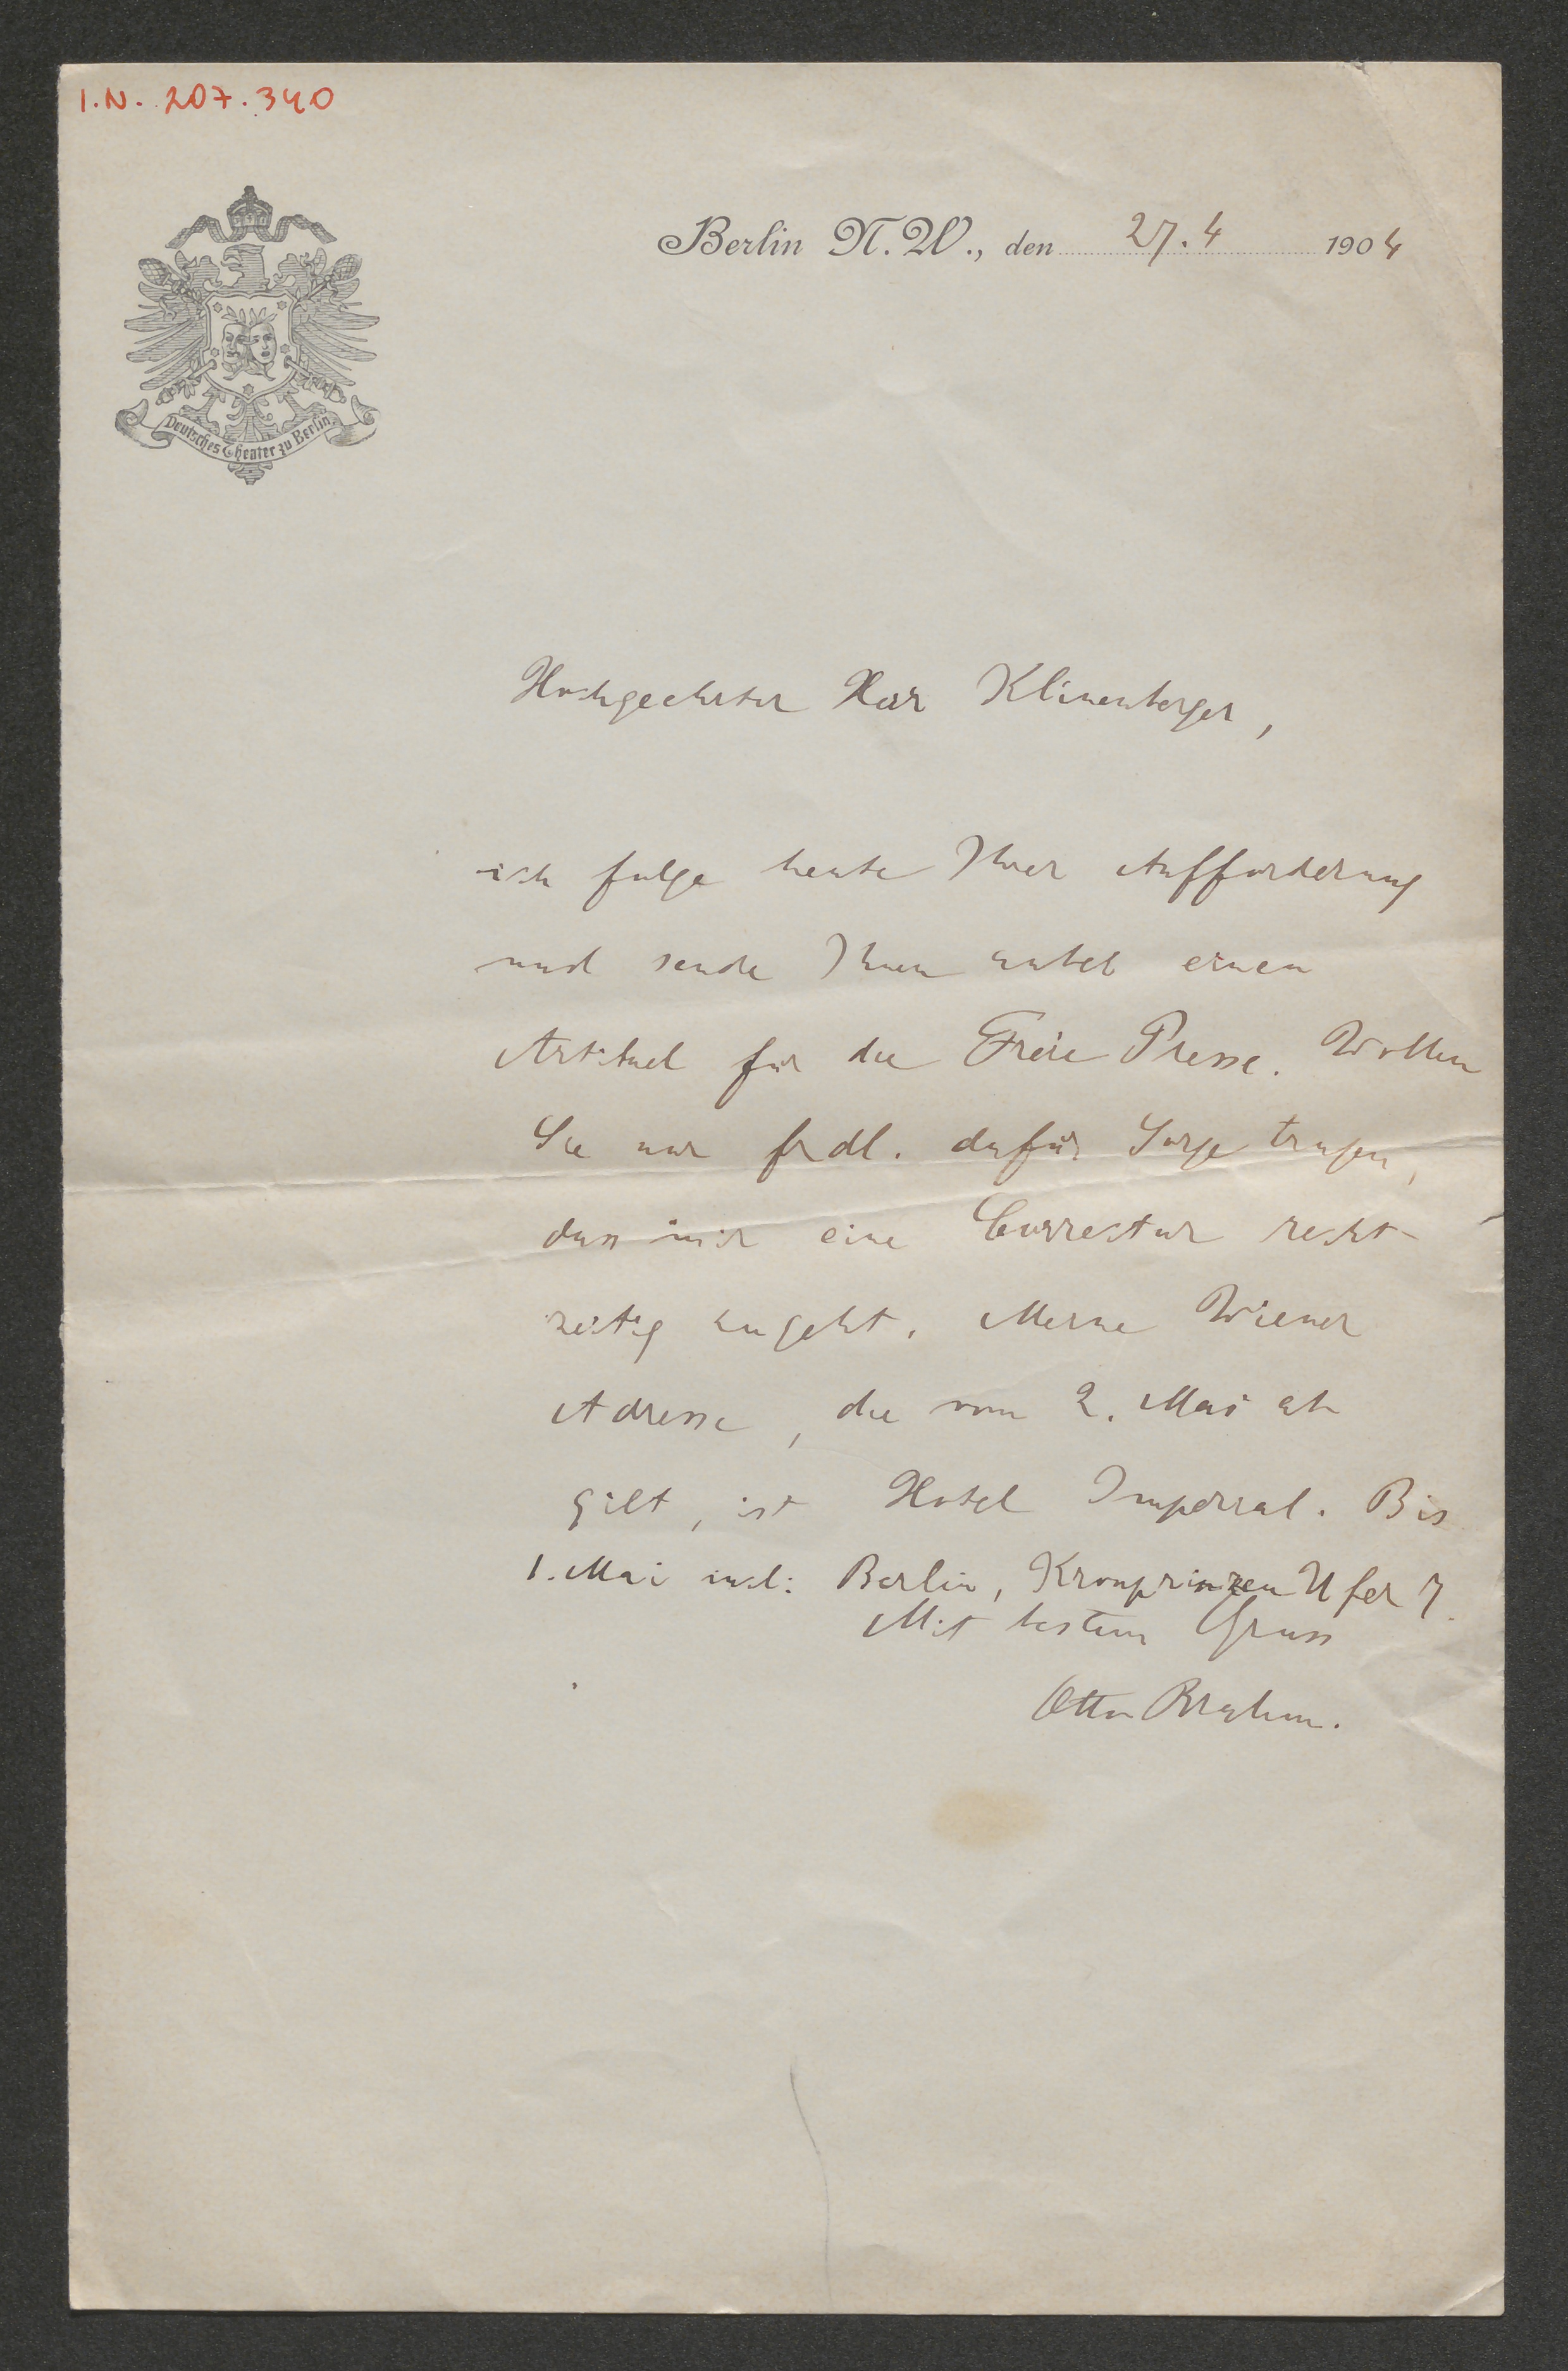 I.N. 207.340
Berlin N.W., den 27.4 1904
Deutsches Theater zu Berlin
Hochgeehrter Herr Klinenberger,
ich folge heute Ihrer Aufforderung
und sende Ihnen anbei einen
Artikel für die Freie Presse. Wollen
Sie nur frdl. dafür Sorge tragen,
dass mir eine Correctur recht-
zeitig zugeht. Meine Wiener
Adresse, die vom 2. Mai ab
gilt, ist Hotel Imperial. Bis
1. Mai incl: Berlin, Kronprinzen Ufer 7.
Mit bestem Gruss
Otto Brahm.